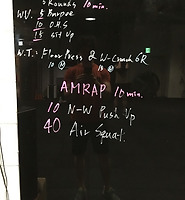 3 Rounds 10 min.
W.U. 5 Burpee
10 O.H.S
15 Sit Up
N.T: Floor Press & W-Crunch 6R
10 10
AMRAP 10 min.
10 H-W Push Up
40 Air Squat.